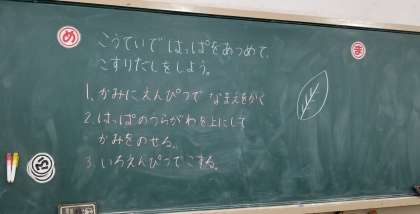 め
こうていで はっぱをあつめて、
こすりだしをしよう。
ま
1、かみにえんぴつで なまえをかく
2、はっぱのうらがわを上にして
かみをのせる。
3、いろえんぴつでこする。